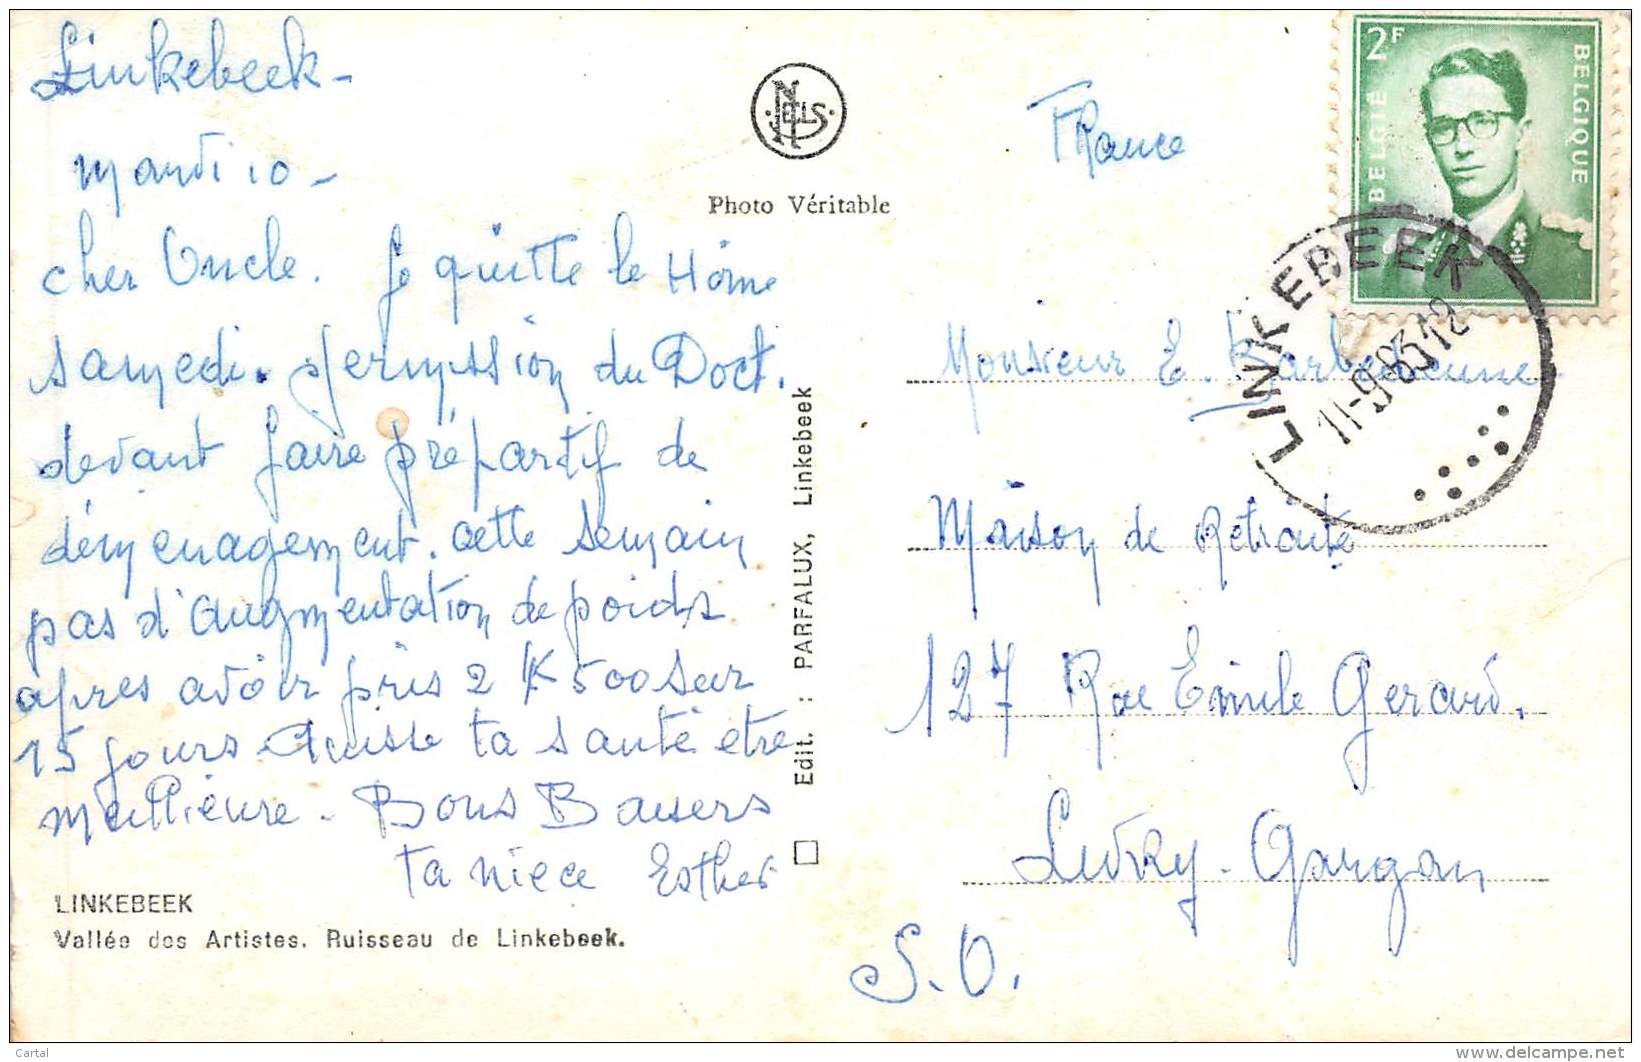 Linkebeek -
Mardi 10 -
cher Oncle. Je quitte le Home
samedi. permission du Doct.
devant faire préparatif de
déménagement. cette semain
pas d'augmentation de poids
apres avoir pris 2 K 500 sur
15 jours. Puisse ta santé etre
meilleure. Bons Baisers
ta niece Esther
LINKEBEEK
Vallée des Artistes. Ruisseau de Linkebeek.
NELS
Photo Véritable
Edit. : PARFALUX, Linkebeek
France
2F
BELGIË BELGIQUE
LINKEBEEK
11-9-63 12
Monsieur E. Barbedienne
Maison de Retraite
127 Rue Emile Gerard.
Livry-Gargan
S.O.
Cartal
www.delcampe.net